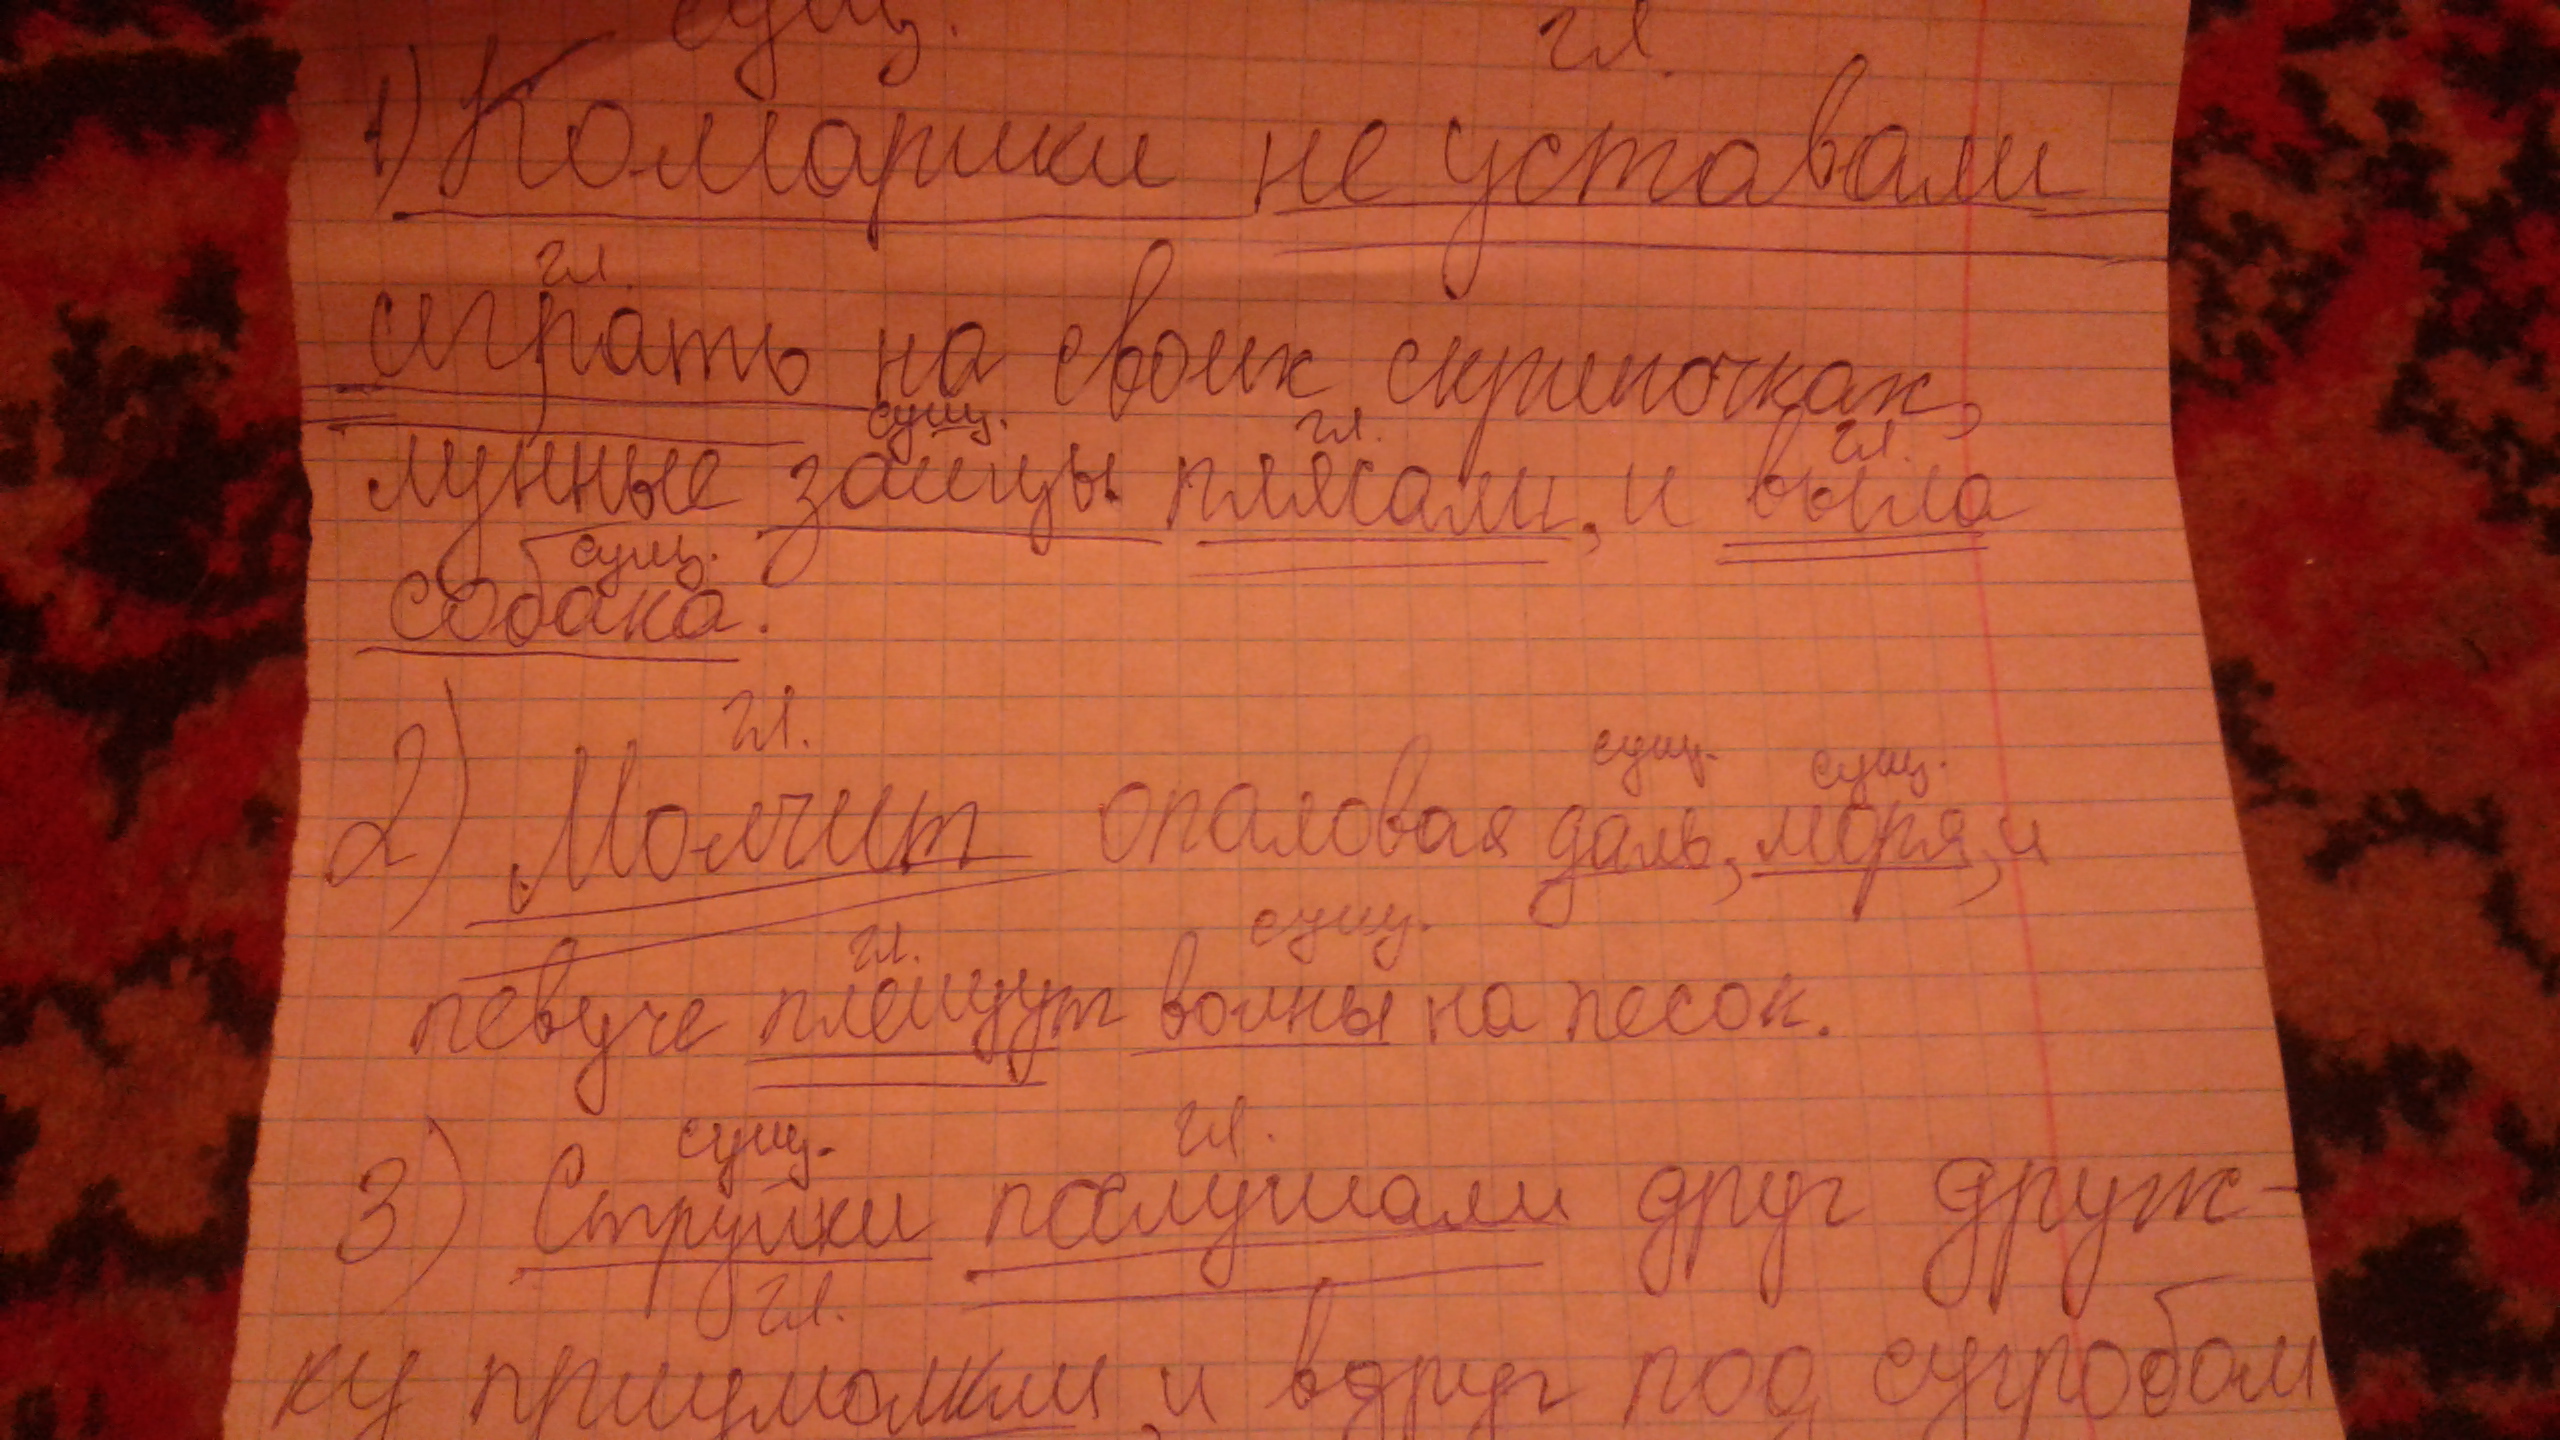 сущ. гл.
1) Комарики не уставали
гл.
играть на своих скрипочках,
сущ. гл. гл.
лунные зайцы плясали, и выла
сущ.
собака.
гл. сущ. сущ.
2) Молчит опаловая даль, моря, и
гл. сущ.
певуче плещут волны на песок.
сущ. гл.
3) Струйки послушали друг друж-
гл.
ку приумолкли, и вдруг под сугробом